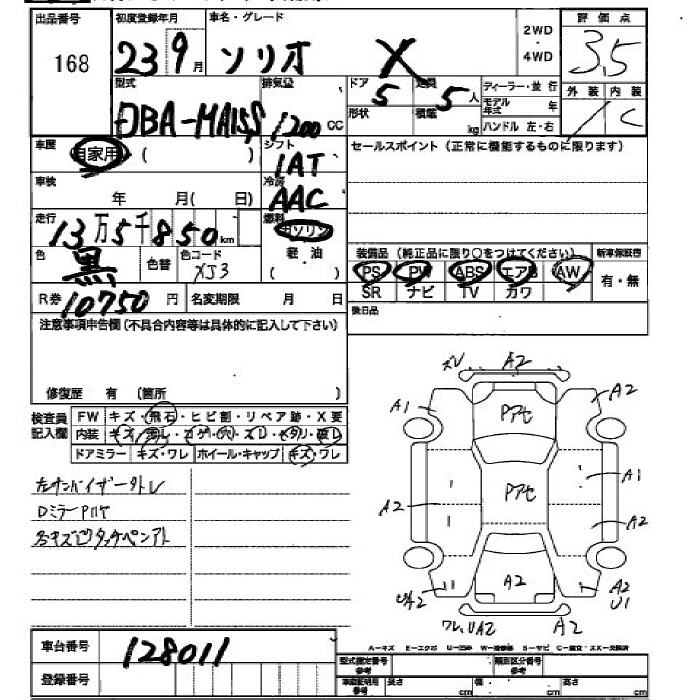 出品番号 初度登録年月 車名・グレード 2WD・4WD 評価点
168 23 9月 ソリオ X 3.5
型式 排気量 ドア 定員 ディーラー・並行 外装 内装
DBA-MA15S 1200cc 5 5人 モデル年式 年 C
形状 積載 kg ハンドル 左・右
車歴 自家用 ( ) シフト セールスポイント (正常に機能するものに限ります)
1AT
車検 年 月( 日) 冷房
AAC
走行 13万5千850km 燃料 ガソリン
軽油
色 黒 色替 色コード XJ3
装備品 (純正品に限り○をつけてください) 新車保証書
PS PW ABS エアB AW 有・無
SR ナビ TV カワ
R券 10750円 名変期限 月 日
後日品
注意事項申告欄 (不具合内容等は具体的に記入して下さい)
修復歴 有 (箇所 )
検査員記入欄 FW キズ・飛石・ヒビ割・リペア跡・X要
内装 キズ・汚レ・コゲ・穴・スレ・ヘタリ・破レ
ドアミラー キズ・ワレ ホイール・キャップ キズ・ワレ
左サンバイザータレ
DミラーPハゲ
各キズピタッチペンアト
ズレ A2
A1 A2
Pアセ
A1
A2 Pアセ
A2
A2
U A2 A2
U1
ワレ、UA2 A2
A-キズ E-エクボ U-凹み W-補修跡 S-サビ C-腐食 XX-交換済
車台番号 128011
型式指定番号 参考 類別区分番号 参考
登録番号
車庫証明用 参考 長さ cm 幅 cm 高さ cm